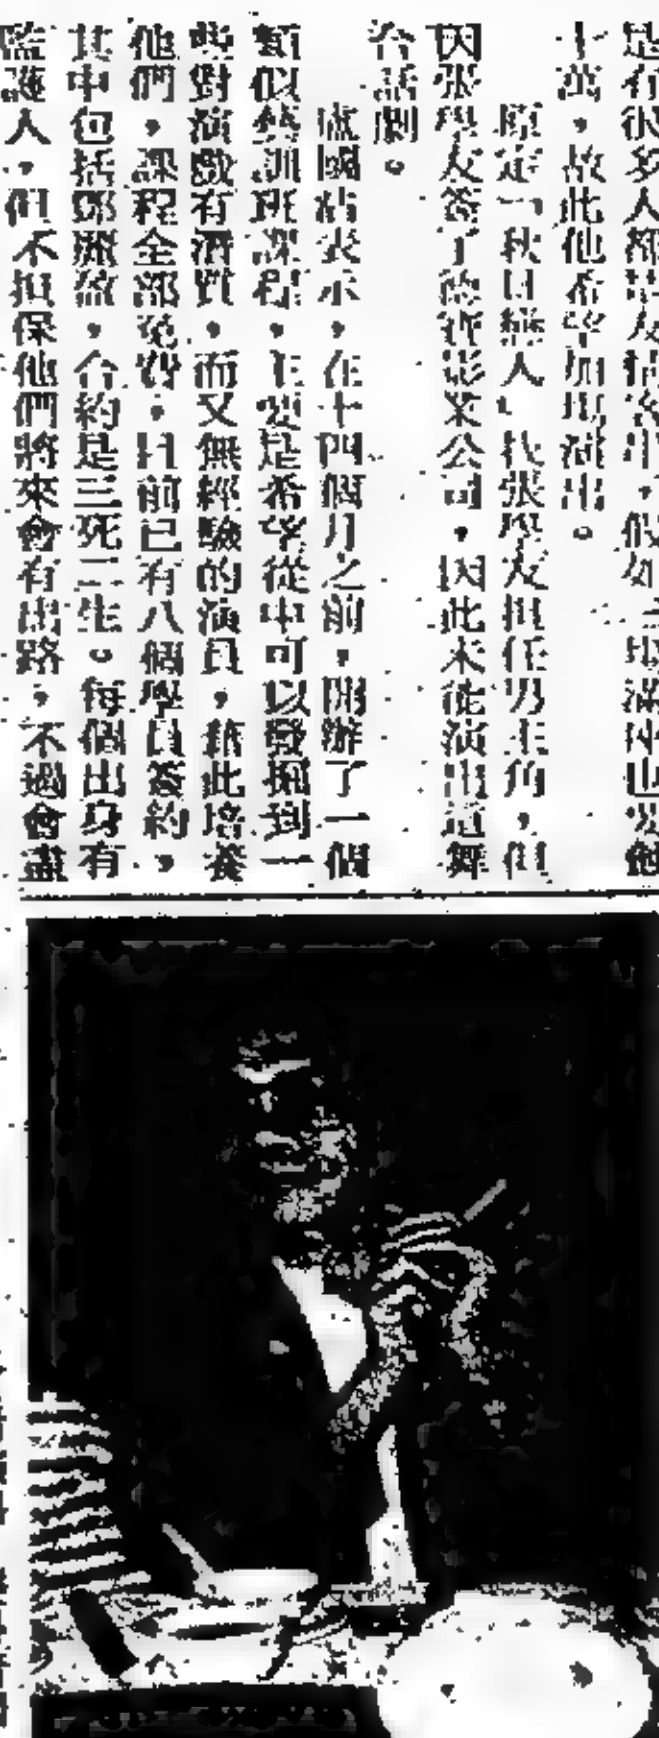 是有很多人都是友情客串，假如　場滿座也要蝕
十萬，故此他希望加場演出。
原定「秋日戀人」找張學友担任男主角，但
因張學友簽了德寶影業公司，因此未能演出這舞
台話劇。
盧國沾表示，在十四個月之前，開辦了一個
類似藝訓班課程，主要是希望從中可以發掘到一
些對演戲有潛質，而又無經驗的演員，藉此培養
他們，課程全部免費，目前已有八個學員簽約，
其中包括鄧麗盈，合約是三死二生。每個出身有
監護人，但不担保他們將來會有出路，不過會盡